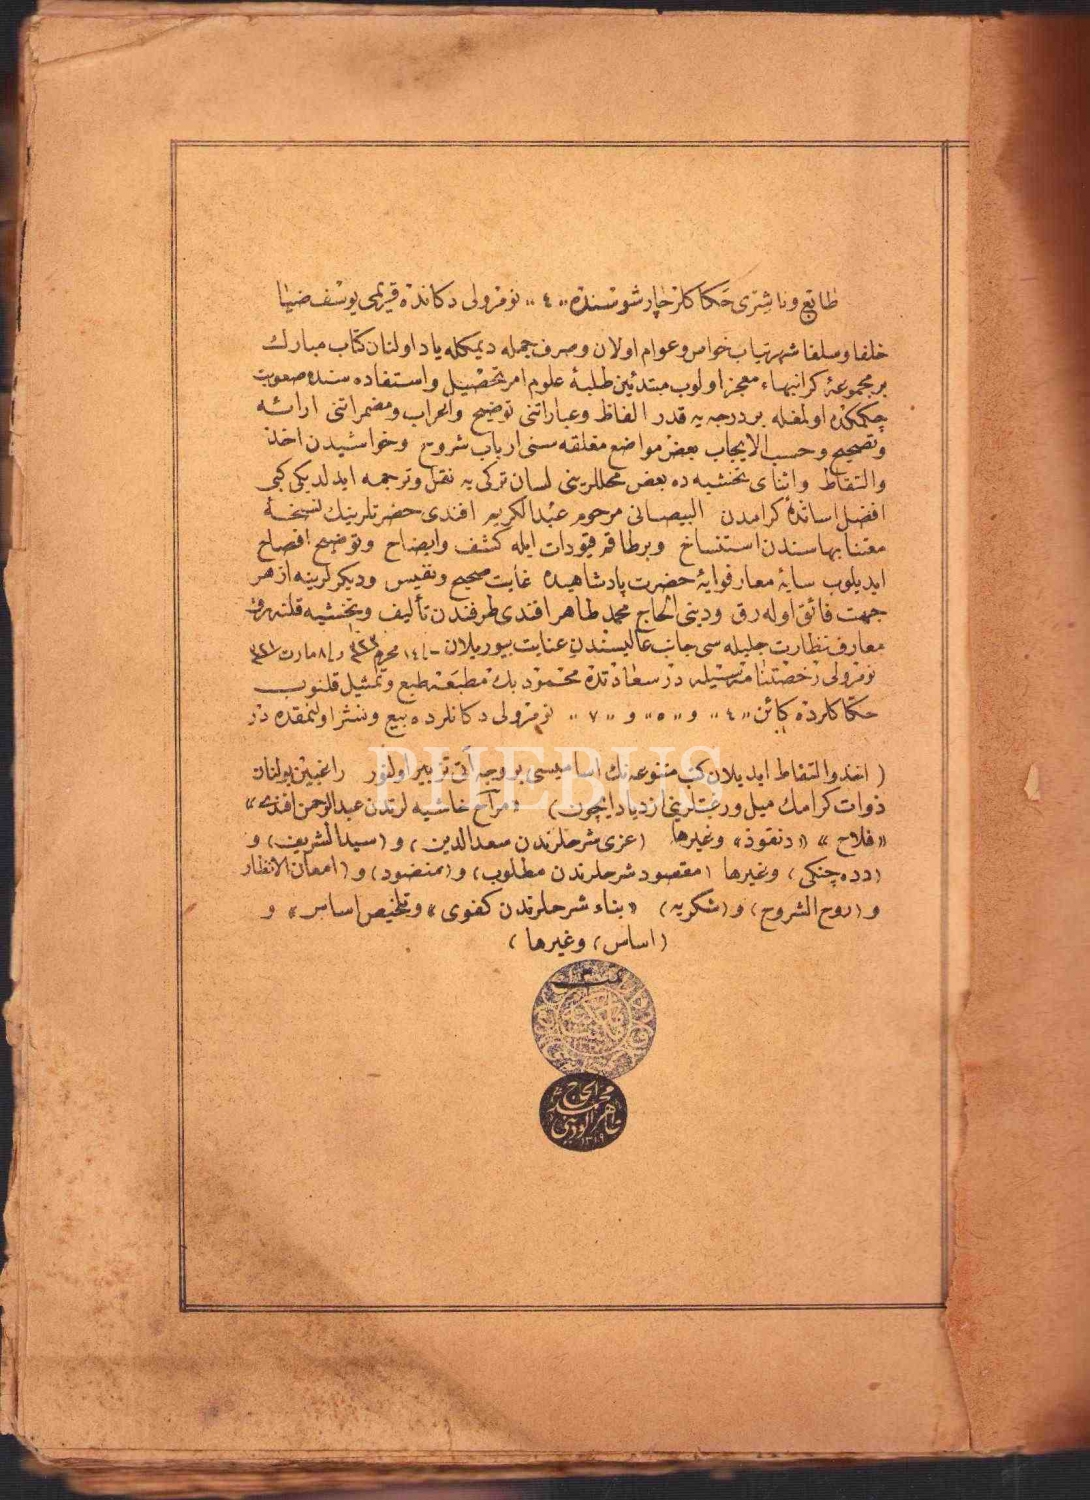 طابع و ناشری حكاكلر چارشوسنده „٤„ نومرولی دكانده قریمی یوسف ضیا
خلفا و سلفا شهرتیاب خواص و عوام اولان و صرف جمله دیمكله یاد اولنان كتاب مبارك
بر مجموعهٔ كرانبهاء معجز اولوب مبتدئین طلبهٔ علوم امر تحصیل و استفاده سنده صعوبت
چكمكده اولمغله بر درجه یه قدر الفاظ و عباراتنی توضیح و اعراب و مضمراتنی ارائه
و تصحیح و حسب الایجاب بعض مواضع مغلقه سنی ارباب شروح و حواشیدن اخذ
والتقاط و اثنای تحشیه ده بعض محللرینی لسان تركی یه نقل و ترجمه ایدلدیكی كبی
افضل اساتذهٔ كرامدن البیصانی مرحوم عبدالكریم افندی حضرتلرینك نسخهٔ
معتنا بهاسندن استنساخ و بر طاقم قیودات ایله كشف و ایضاح و توضیح افصاح
ایدیلوب سایهٔ معارفوایهٔ حضرت پادشاهیده غایت صحیح و نفیس و دیكرلرینه از هر
جهت فائق اوله رق ودینی الحاج محمد طاهر افندی طرفندن تألیف و تحشیه قلنه رق
معارف نظارت جلیله سی جانب عالیسندن عنایت بیوریلان ١٤ محرم ٣٢٣ و ٨ مارت ٣٢١
نومرولی رخصتنامه سیله در سعادتده محمود بك مطبعه طبع و تمثیل قلنوب
حكاكلرده كائن „٤„ و „٥„ و „٧„ نومرولی دكانلرده بیع و نشر اولنمقده در
(اخذ و التقاط ایدیلان كتب متنوعه نك اسامیسی بر وجه آتی تزبیر اولنور راغبین بولنان
ذوات كرامك میل و رغبتلرینی ازدیاد ایچون) «مراح حاشیه لرندن عبدالرحمن افندی»
«فلاح» «دنقوز» وغیرها (عزی شرحلرندن سعدالدین) و (سیدالشریف) و
(دده جنكی) وغیرها (مقصود شرحلرندن مطلوب) و (منضود) و (امعان الانظار
و (روح الشروح) و (شكریه) «بناء شرحلرندن كفوی» و تلخیص اساس» و
(اساس) وغیرها)
الحاج محمد طاهر الودینی ١٣١٩
PHEBUS